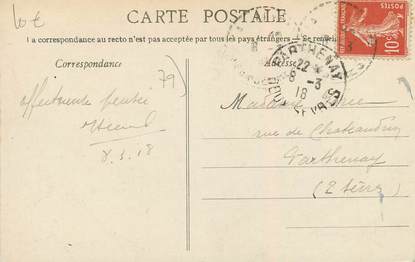 10 €
CARTE POSTALE
la correspondance au recto n'est pas acceptée par tous les pays étrangers
Correspondance
Adresse
79
affectueuse pensée
8.3.18
PARTHENAY
22 *
8 - 3
18
DEUX SEVRES
10c
POSTES
Madame
rue de Chateaudun
Parthenay
(2 Sèvres)